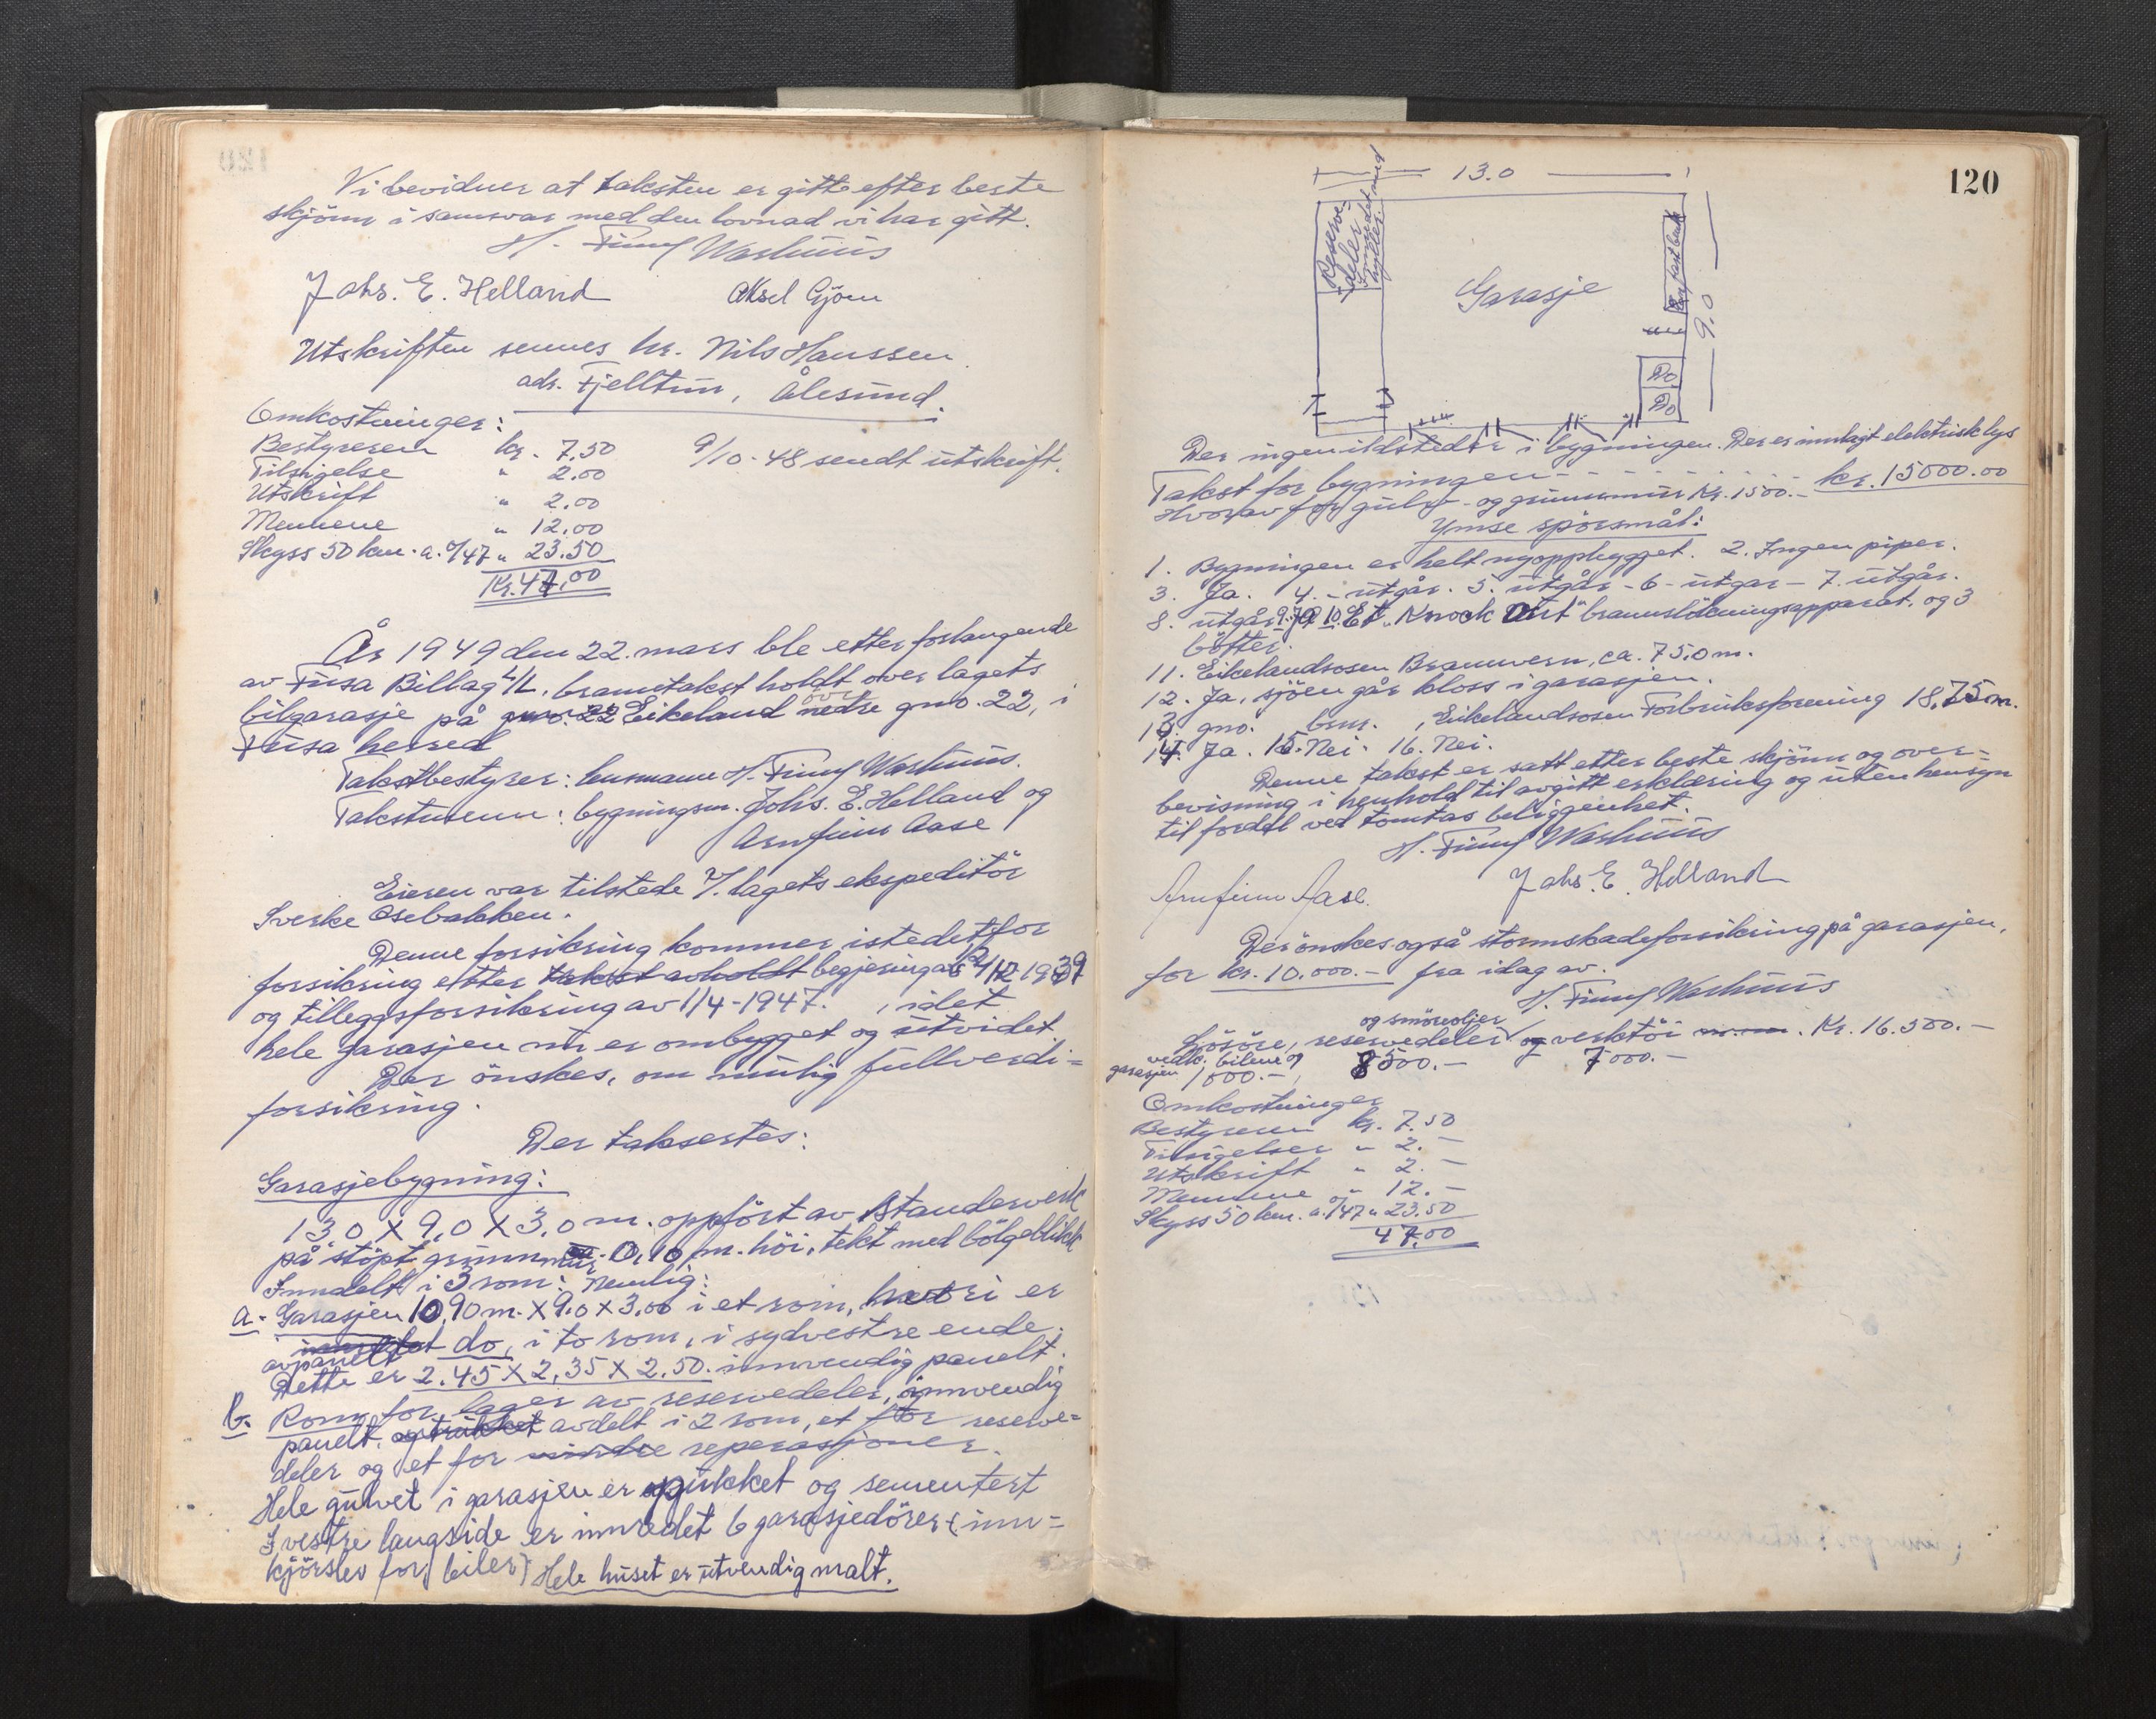 Vi bevidner at taksten er gitt efter beste
skjönn i samsvar med den lovnad vi har gitt.
H. Finny Warhuus
Johs. E. Helland Aksel Gjön
Utskriften sennes hr. Nils Hanssen
adr. Fjelltun, Ålesund.
Omkostninger:
Bestyreren kr. 7.50
9/10-48 sendt utskrift.
Tilsigelse " 2.00
Utskrift " 2.00
Mennene " 12.00
Skyss 50 km. a. 0/47 " 23.50
Kr. 47,00
År 1949 den 22. mars ble etter forlangende
av Fusa Billag L/L. branntakst holdt over lagets
bilgarasje på gno. 22 Eikeland nedre gno. 22, i
övre
Fusa herred
Takstbestyrer: lensmann H. Finny Warhuus.
Takstmenn: bygningsm. Johs. E. Helland og
Arnfinn Aase
Eieren var tilstede v/ lagets ekspeditör
Sverke Osebakken.
Denne forsikring kommer istedetfor
forsikring etter takst avholdt begjering av 2/12 1939
og tilleggsforsikring av 1/4-1947. , idet
hele garasjen nu er ombygget og utvidet.
Der önskes, om mulig fullverdi=
forsikring.
Der taksertes:
Garasjebygning:
13,0 X 9,0 X 3,0 m. oppfört av standerverk
på stöpt grunnmur. 0,10 m. höi, tekt med bölgeblikk
Inndelt i 3 rom: Nemlig:
a. Garasjen 10.90 m. X 9.0 X 3,00 i et rom, hvori er
innredet do, i to rom, i sydvestre ende.
avpanelt
Dette er 2.45 X 2,35 X 2.50. innvendig panelt.
b. Rom for lager av reservedeler, innvendig
panelt, og trukket avdelt i 2 rom, et for reserve=
deler og et for mindre reperasjoner.
Hele gulvet i garasjen er pukket og sementert
I vestre langside er innredet 6 garasjedörer (inn=
kjörsler for biler) Hele huset er utvendig malt.
120
13.0
Reserve-
deler
Innredet med
hyller
Garasje
fast benk
9.0
Do
Do
Der ingen ildsteder i bygningen. Der er innlagt elektrisk lys
Takst for bygningen - - - - - - - kr. 15000.00
Hvorav for gulv- og grunnmur Kr. 1500.-
Ymse spörsmål:
1. Bygningen er helt nyoppbygget. 2. Ingen piper.
3. Ja. 4. - utgår. 5. utgår - 6 - utgår - 7. utgår.
8. utgår 9. Ja 10. Et "Knock Out" brannslökningsapparat. og 3
bötter.
11. Eikelandsosen Brannvern, ca. 75,0 m.
12. Ja, sjöen går kloss i garasjen.
13. gno. brnr. , Eikelandsosen Forbruksforening 18,75 m.
14. Ja. 15. Nei. 16. Nei.
Denne takst er satt etter beste skjönn og over=
bevisning i henhold til avgitt erklæring og uten hensyn
til fordel ved tomtas beliggenhet.
H. Finny Warhuus
Arnfinn Aase. Johs. E. Helland
Der önskes også stormskadeforsikring på garasjen,
for kr. 10.000.- fra idag av.
H. Finny Warhuus
og smöreoljer
Lösöre, reservedeler og verktöi . Kr. 16.500.-
vedk. bilene og
garasjen 1000.-, 8500.- 7000.-
Omkostninger
Bestyreren kr. 7.50
Tilsigelser " 2.-
Utskrift " 2.-
Mennene " 12.-
Skyss 50 km. a. 0/47 " 23.50
47,00